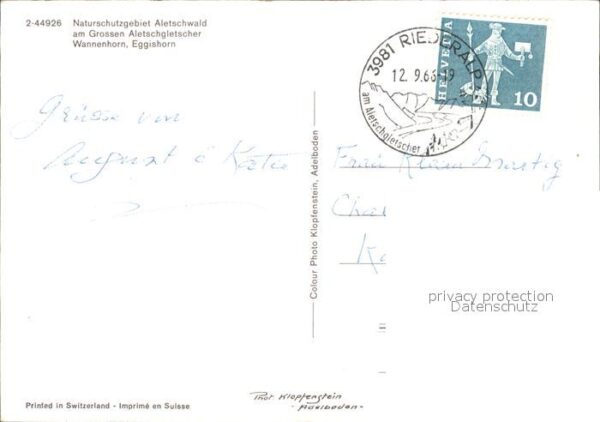 2-44926 Naturschutzgebiet Aletschwald
am Grossen Aletschgletscher
Wannenhorn, Eggishorn
3981 RIEDERALP
12.9.66-19
am Aletschgletscher
HELVETIA
10
Grüsse von
August &
Frau
Colour Photo Klopfenstein, Adelboden
privacy protection
Datenschutz
Phot. Klopfenstein
- Adelboden -
Printed in Switzerland - Imprimé en Suisse